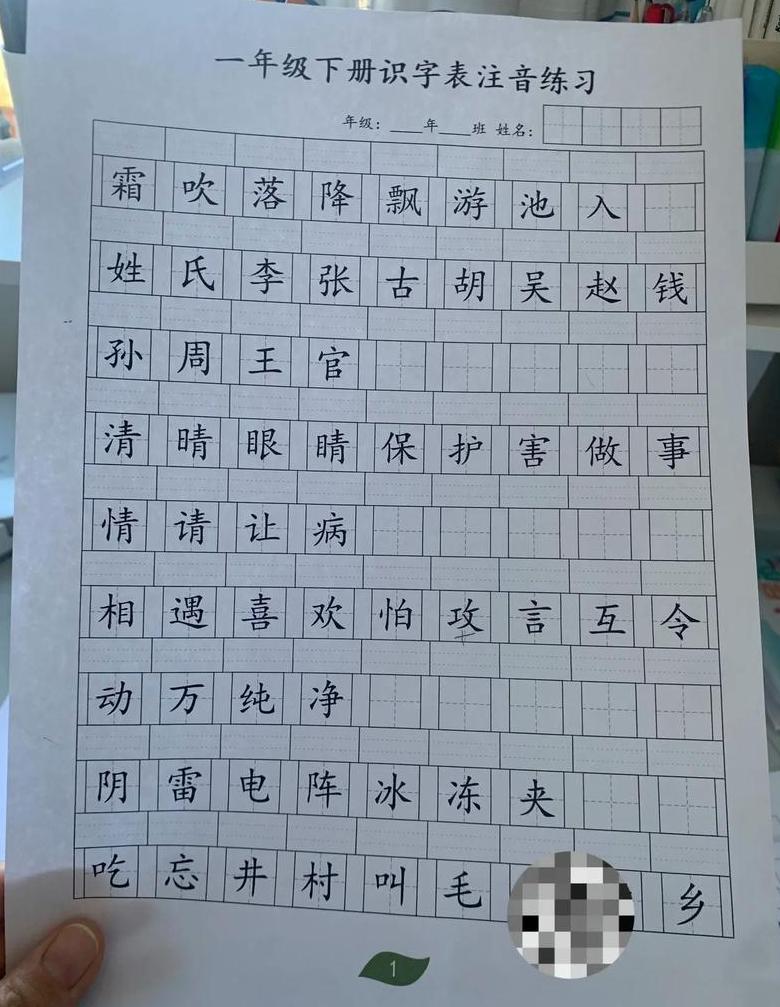 一年级下册识字表注音练习
年级：____年____班 姓名：
霜 吹 落 降 飘 游 池 入
姓 氏 李 张 古 胡 吴 赵 钱
孙 周 王 官
清 晴 眼 睛 保 护 害 做 事
情 请 让 病
相 遇 喜 欢 怕 攻 言 互 令
动 万 纯 净
阴 雷 电 阵 冰 冻 夹
吃 忘 井 村 叫 毛 乡
1